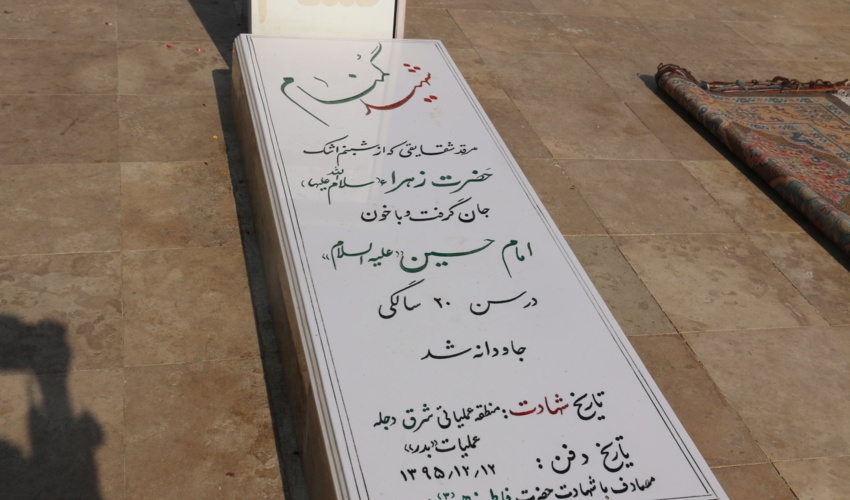 شهید گمنام
مرقد شقایقی که از شبنم اشک
حضرت زهراء «سلام الله علیها»
جان گرفت و با خون
امام حسین «علیه السلام»
در سن ۲۰ سالگی
جاودانه شد
تاریخ شهادت: منطقه عملیاتی شرق دجله
عملیات «بدر»
تاریخ دفن: ۱۳۹۵/۱۲/۱۲
مصادف با شهادت حضرت فاطمه زهرا (س)